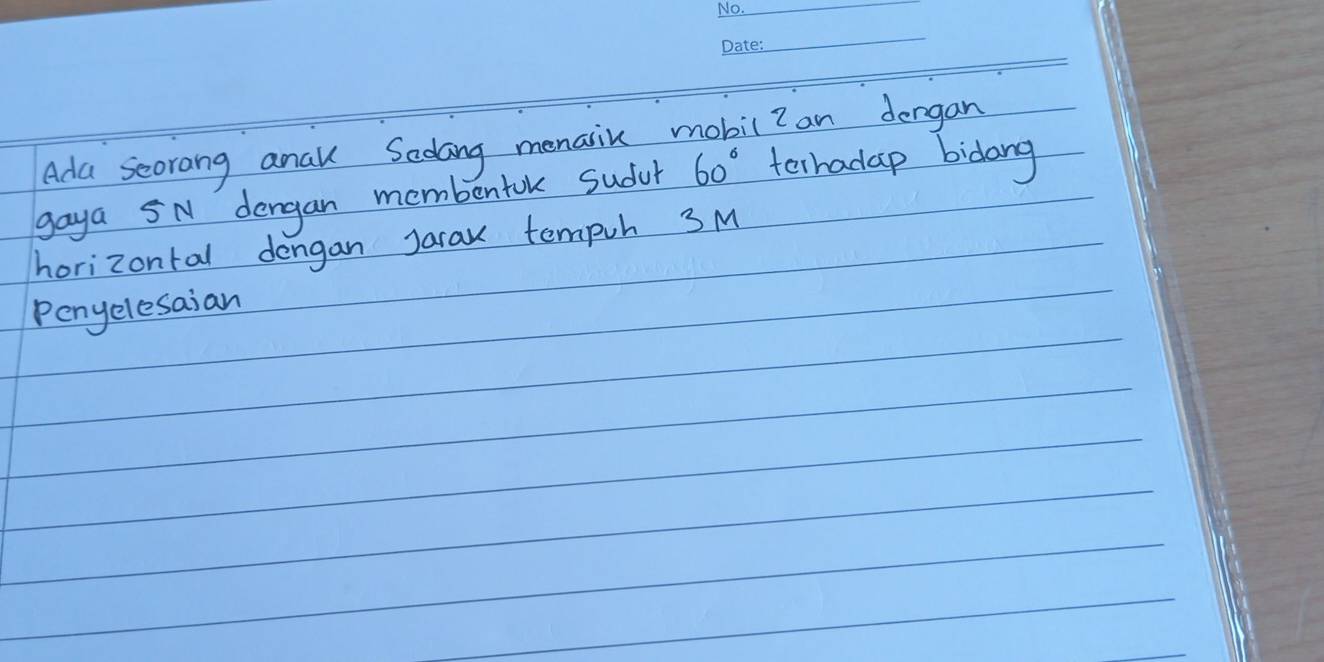 No.
Date:
Ada seorang anak Sedang menarik mobil2an dengan
gaya 5N dengan membentuk sudut 60° terhadap bidang
horizontal dengan jarak tempuh 3M
Penyelesaian